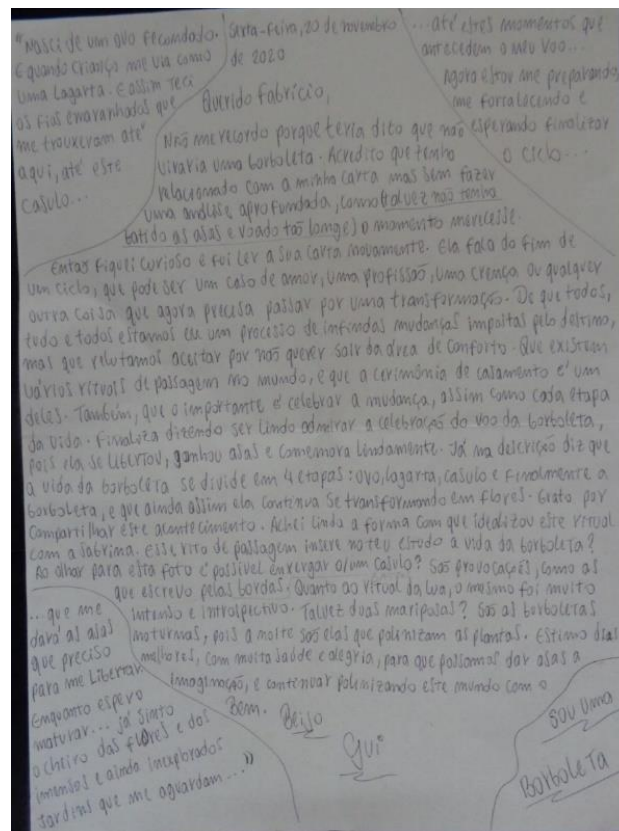 "Nasci de um ovo fecundado.
E quando criança me via como
uma lagarta. E assim teci
os fios emaranhados que
me trouxeram até
aqui, até este
casulo...
Sexta-feira, 20 de novembro
de 2020
...até estes momentos que
antecedem o meu voo...
Agora estou me preparando,
me fortalecendo e
esperando finalizar
o ciclo...
Querido Fabrício,
Não me recordo porque teria dito que não
viraria uma borboleta. Acredito que tenho
relacionado com a minha carta mas sem fazer
uma análise aprofundada, como (talvez não tenha
batido as asas e voado tão longe) o momento merecesse.
Então fiquei curioso e fui ler a sua carta novamente. Ela fala do fim de
um ciclo, que pode ser um caso de amor, uma profissão, uma crença ou qualquer
outra coisa que agora precisa passar por uma transformação. De que todos,
tudo e todos estamos em um processo de infindas mudanças impostas pelo destino,
mas que relutamos aceitar por não querer sair da área de conforto. Que existem
vários rituais de passagem no mundo, e que a cerimônia de casamento é um
deles. Também, que o importante é celebrar a mudança, assim como cada etapa
da vida. Finaliza dizendo ser lindo admirar a celebração do voo da borboleta,
pois ela se libertou, ganhou asas e comemora lindamente. Já na descrição diz que
a vida da borboleta se divide em 4 etapas: ovo, lagarta, casulo e finalmente a
borboleta, e que ainda assim ela continua se transformando em flores. Grato por
compartilhar este acontecimento. Achei linda a forma com que idealizou este ritual
com a Sabrina. Esse rito de passagem insere no teu estudo a vida da borboleta?
Ao olhar para esta foto é possível enxergar o/um casulo? São provocações, como as
que escrevo pelas bordas. Quanto ao ritual da lua, o mesmo foi muito
intenso e introspectivo. Talvez duas mariposas? São as borboletas
noturnas, pois a noite são elas que polinizam as plantas. Estimo dias
melhores, com muita saúde e alegria, para que possamos dar asas a
imaginação, e continuar polinizando este mundo com o
Bem. Beijo
Gui
...que me
dará as asas
que preciso
para me libertar.
Enquanto espero
maturar... já sinto
o cheiro das flores e dos
imensos e ainda inexplorados
jardins que me aguardam..."
Sou uma
Borboleta